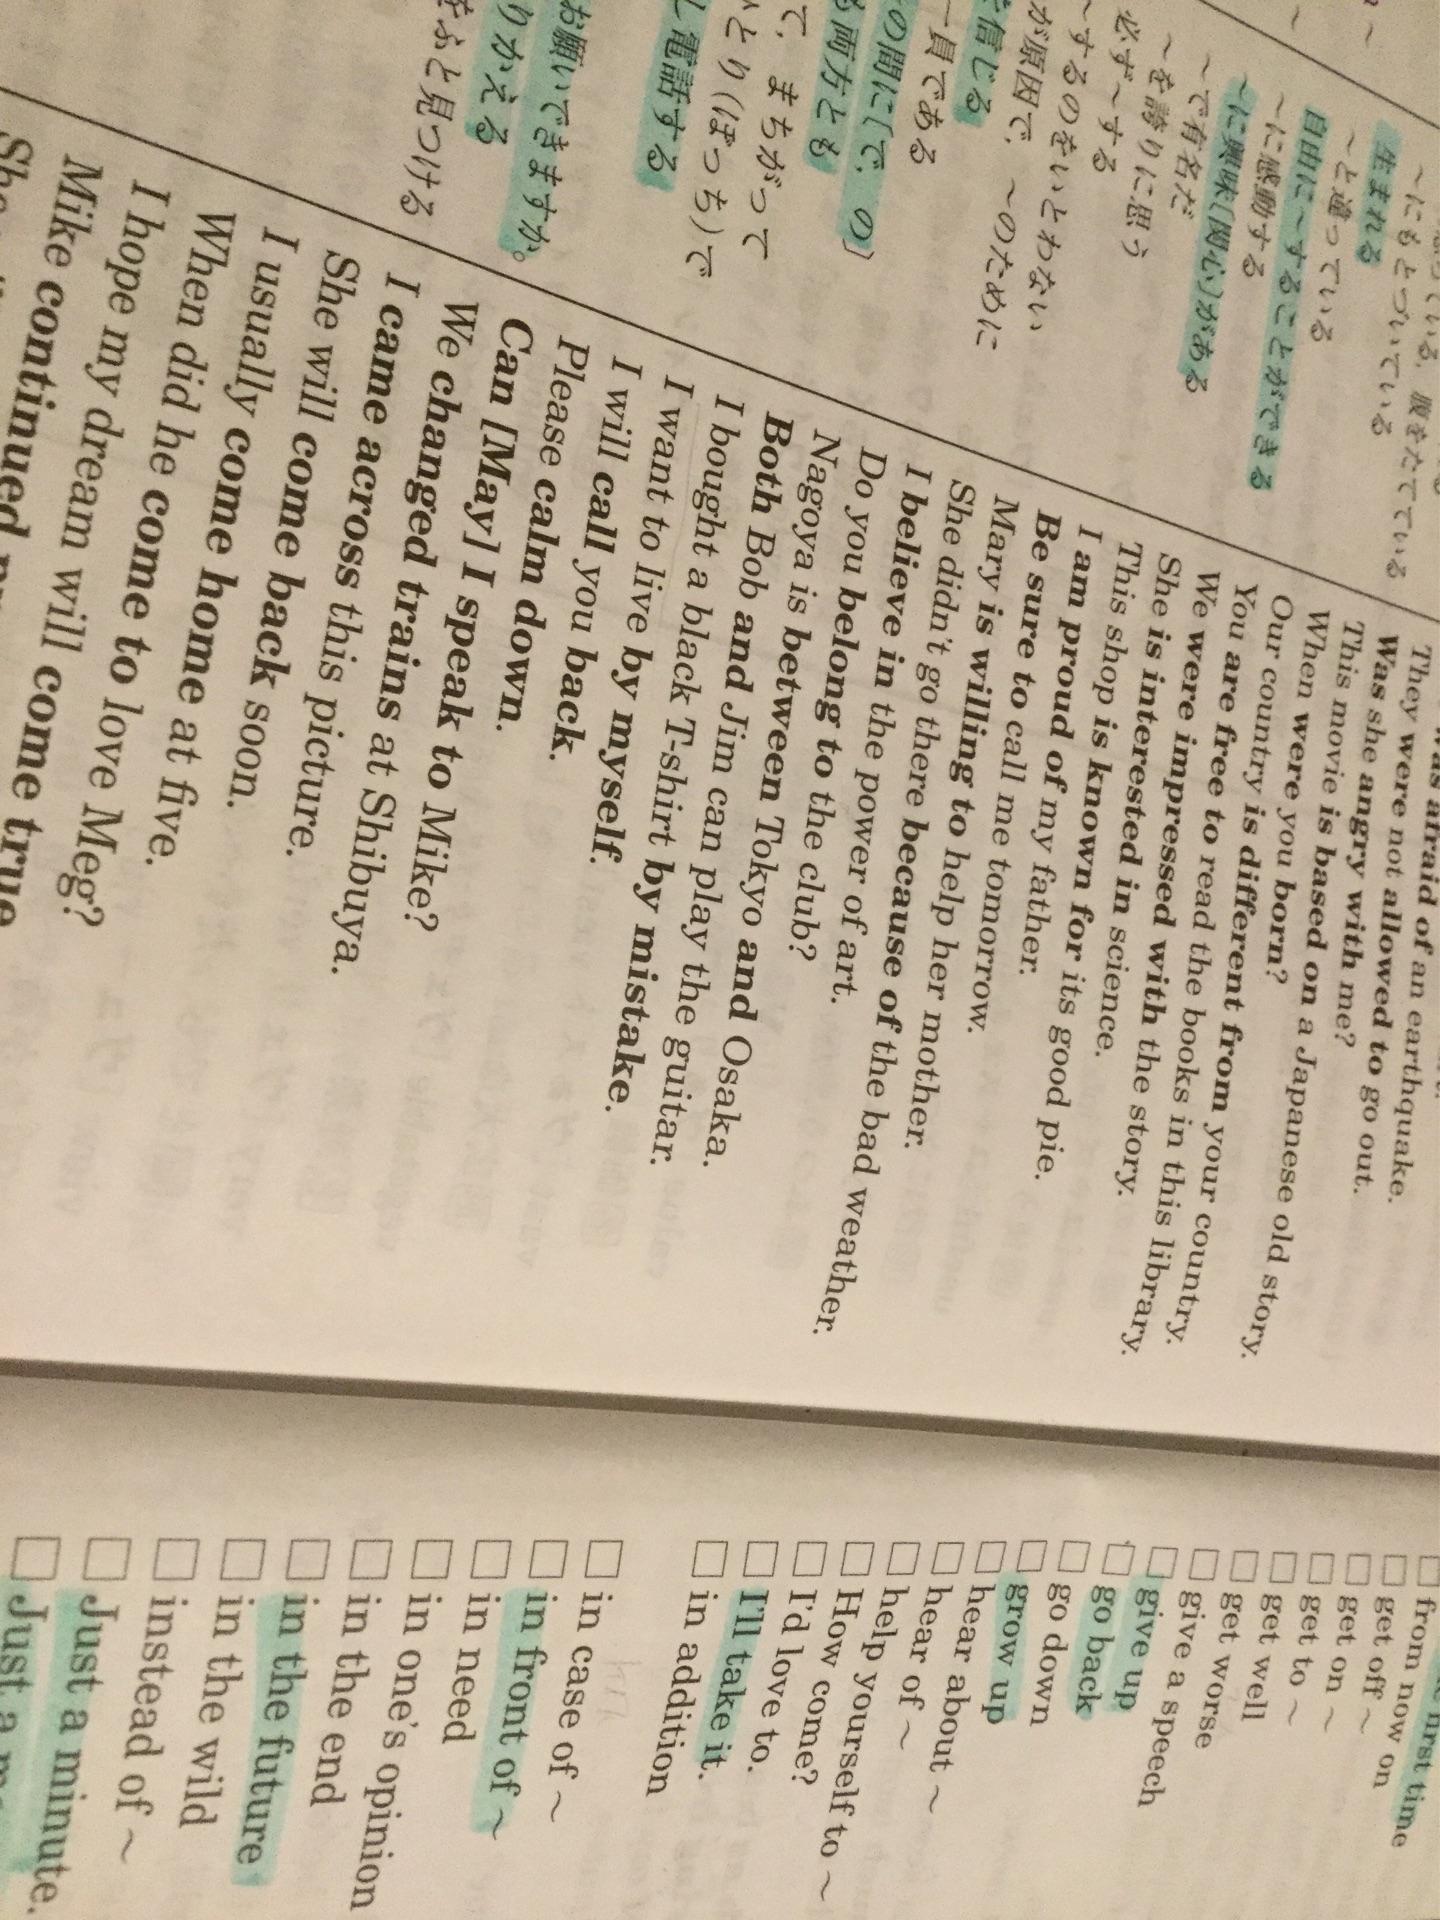 ~にもとづいている
生まれる
~と違っている
自由に~することができる
~に感動する
~に興味[関心]がある
~で有名だ
~を誇りに思う
必ず~する
~するのをいとわない
が原因で,~のために
信じる
一員である
の間に[で,の]
両方とも
て,まちがって
とり(ぼっち)で
電話する
お願いできますか。
りかえる
ふと見つける
was afraid of an earthquake.
They were not allowed to go out.
Was she angry with me?
This movie is based on a Japanese old story.
When were you born?
Our country is different from your country.
You are free to read the books in this library.
We were impressed with the story.
She is interested in science.
This shop is known for its good pie.
I am proud of my father.
Be sure to call me tomorrow.
Mary is willing to help her mother.
She didn't go there because of the bad weather.
I believe in the power of art.
Do you belong to the club?
Nagoya is between Tokyo and Osaka.
Both Bob and Jim can play the guitar.
I bought a black T-shirt by mistake.
I want to live by myself.
I will call you back.
Please calm down.
Can [May] I speak to Mike?
We changed trains at Shibuya.
I came across this picture.
She will come back soon.
I usually come home at five.
When did he come to love Meg?
I hope my dream will come true
Mike continued
She
first time
from now on
get off ~
get on ~
get to ~
get well
get worse
give a speech
give up
go back
go down
grow up
hear about ~
hear of ~
help yourself to ~
How come?
I'd love to.
I'll take it.
in addition
in case of ~
in front of ~
in need
in one's opinion
in the end
in the future
in the wild
instead of ~
Just a minute.
Just a